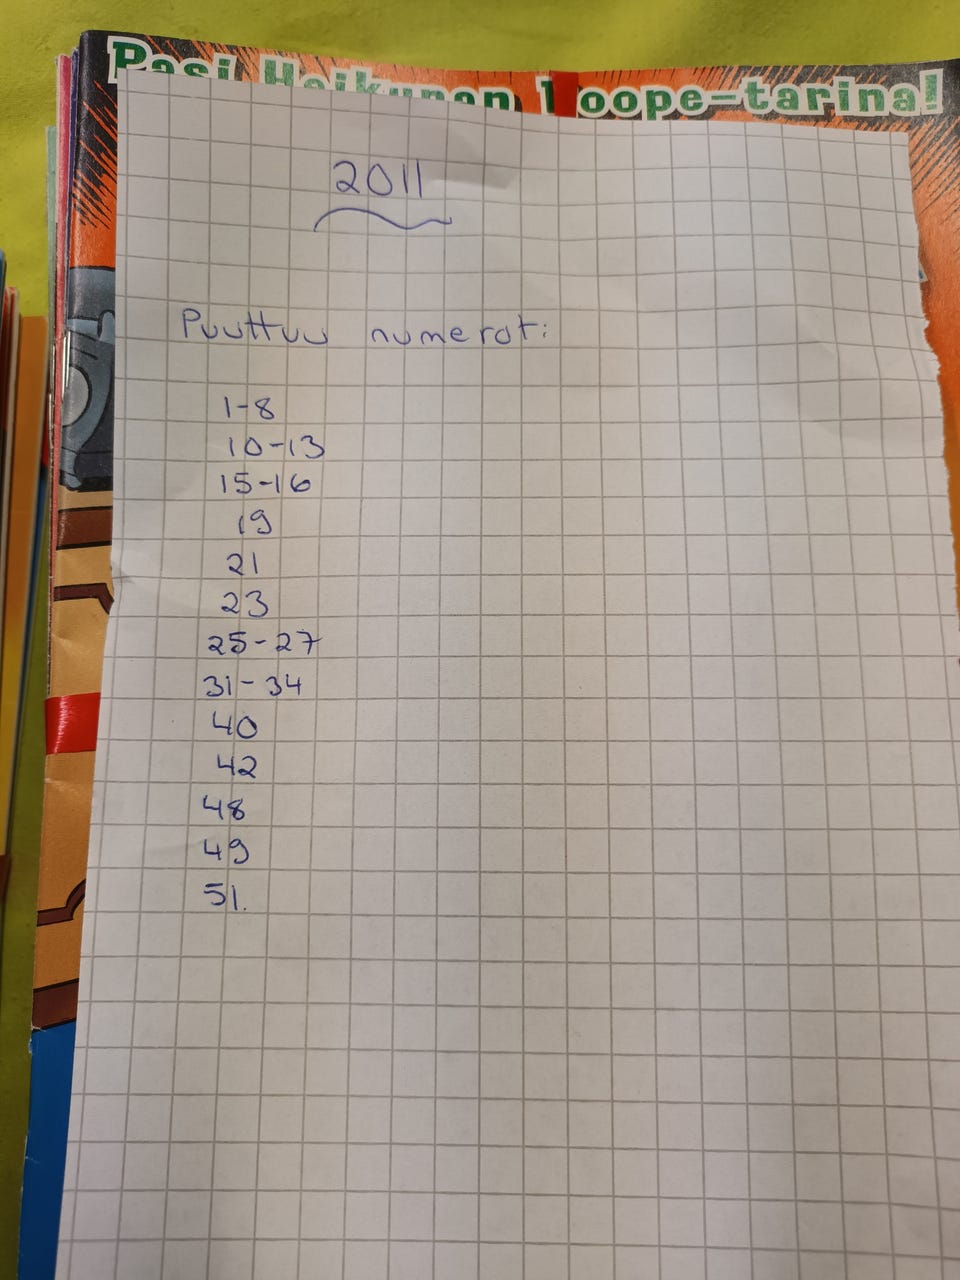 Pasi Heikunen Roope-tarina!
2011
Puuttuu numerot:
1-8
10-13
15-16
19
21
23
25-27
31-34
40
42
48
49
51.